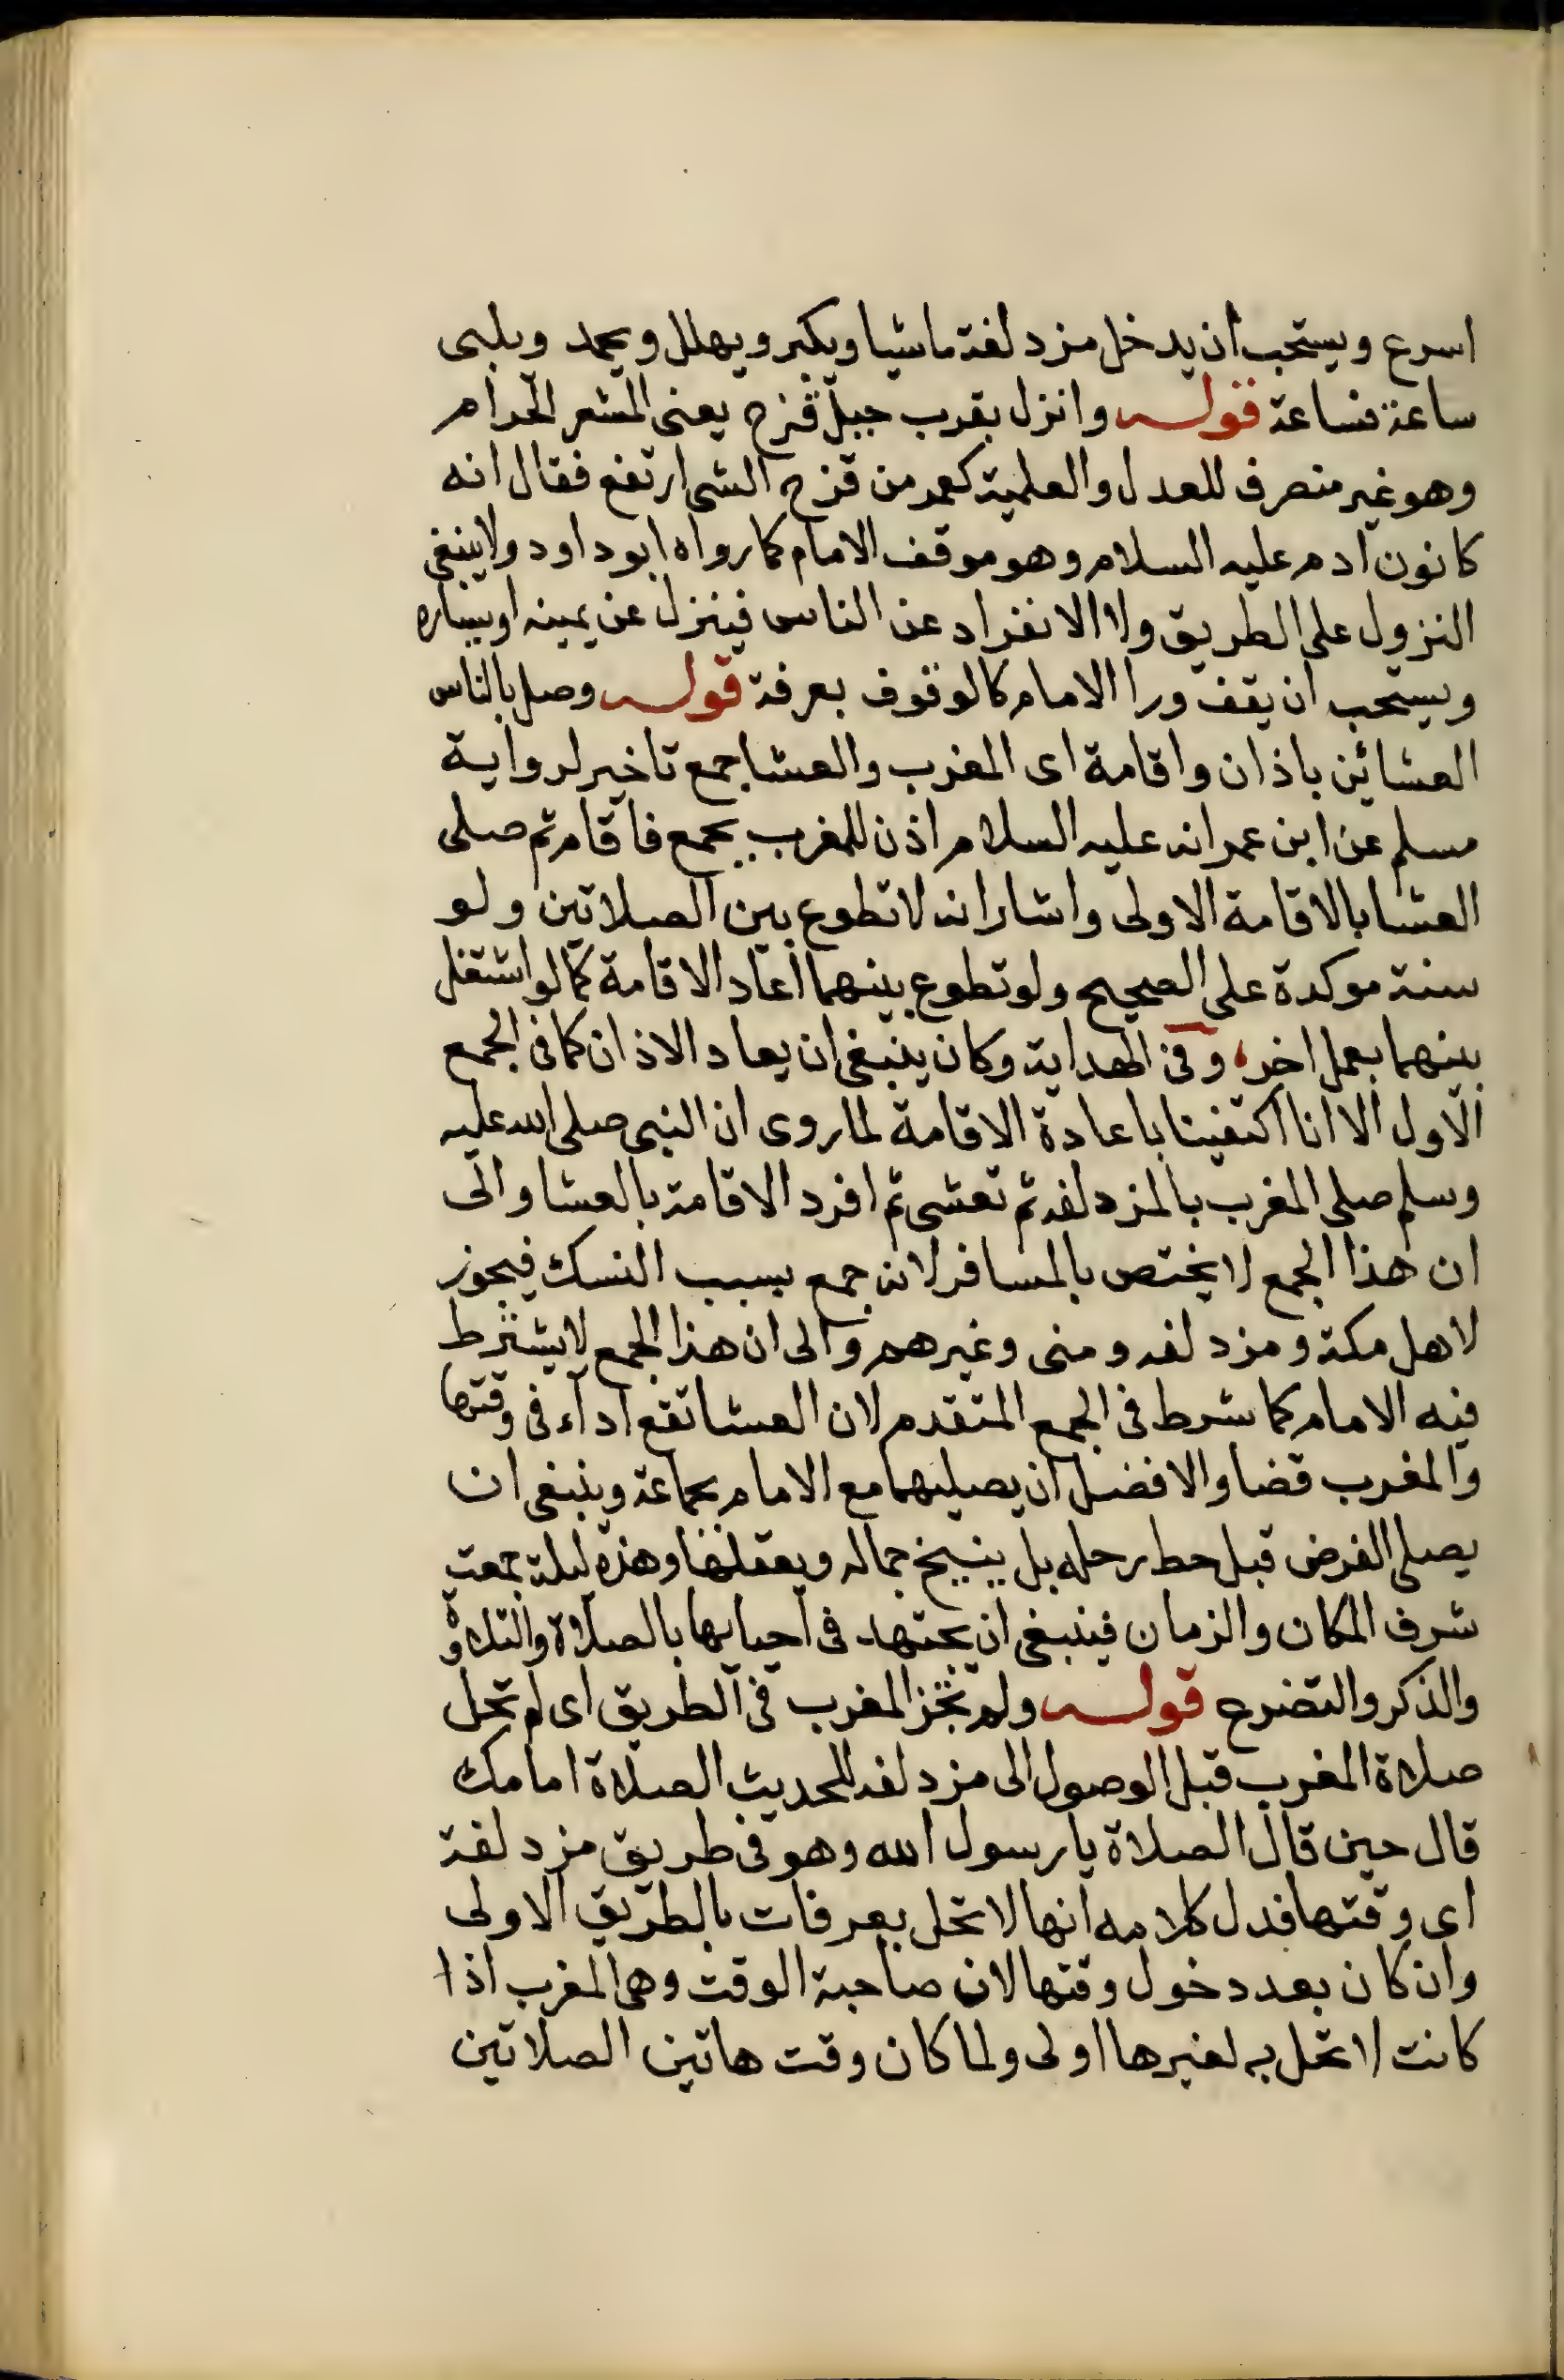 اسرع ويستحب ان يدخل مزدلفة ماشيا ويكبر ويهلل ويحمد ويلبى
ساعة فساعة قوله وانزل بقرب جبل قزح يعنى المشعر الحرام
وهو غير منصرف للعدل والعلمية كعمر من قزح الشى ارتفع فقال انه
كانون ادم عليه السلام وهو موقف الامام كما رواه ابو داود ولا ينبغى
النزول على الطريق ولا الانفراد عن الناس فينزل عن يمينه او يساره
ويستحب ان يقف ورا الامام كالوقوف بعرفة قوله وصل بالناس
العشائين باذان واقامة اى المغرب والعشا جمع تاخير لرواية
مسلم عن ابن عمر انه عليه السلام اذن للمغرب بجمع فاقام ثم صلى
العشا بالاقامة الاولى واشار انه لا تطوع بين الصلاتين ولو
سنة موكدة على الصحيح ولو تطوع بينهما اعاد الاقامة كما لو اشتغل
بينهما بعمل اخر، وفى الهداية وكان ينبغى ان يعاد الاذان كما فى الجمع
الاول الا انا اكتفينا باعادة الاقامة لما روى ان النبى صلى الله عليه
وسلم صلى المغرب بالمزدلفه ثم تعشى ثم افرد الاقامة بالعشا والى
ان هذا الجمع لا يختص بالمسافر لانه جمع بسبب النسك فيجوز
لاهل مكة ومزدلفه ومنى وغيرهم والى ان هذا الجمع لا يشترط
فيه الامام كما شرط فى الجمع المتقدم لان العشا تقع اداء فى وقتها
والمغرب قضا والافضل ان يصليهما مع الامام بجماعة وينبغى ان
يصلى الفرض قبل حط رحله بل ينيخ جماله ويعقلها وهذه ليلة جمعت
شرف المكان والزمان فينبغى ان يجتهد فى احيايها بالصلاة والتلاوة
والذكر والتضرع قوله ولم تجز المغرب فى الطريق اى لم تحل
صلاة المغرب قبل الوصول الى مزدلفه للحديث الصلاة امامك
قال حين قال الصلاة يا رسول الله وهو فى طريق مزدلفة
اى وقتها فدل كلامه انها لا تحل بعرفات بالطريق الاولى
وان كان بعد دخول وقتها لان صاحبة الوقت وهى المغرب اذا
كانت لا تحل به لغيرها اولى ولما كان وقت هاتين الصلاتين